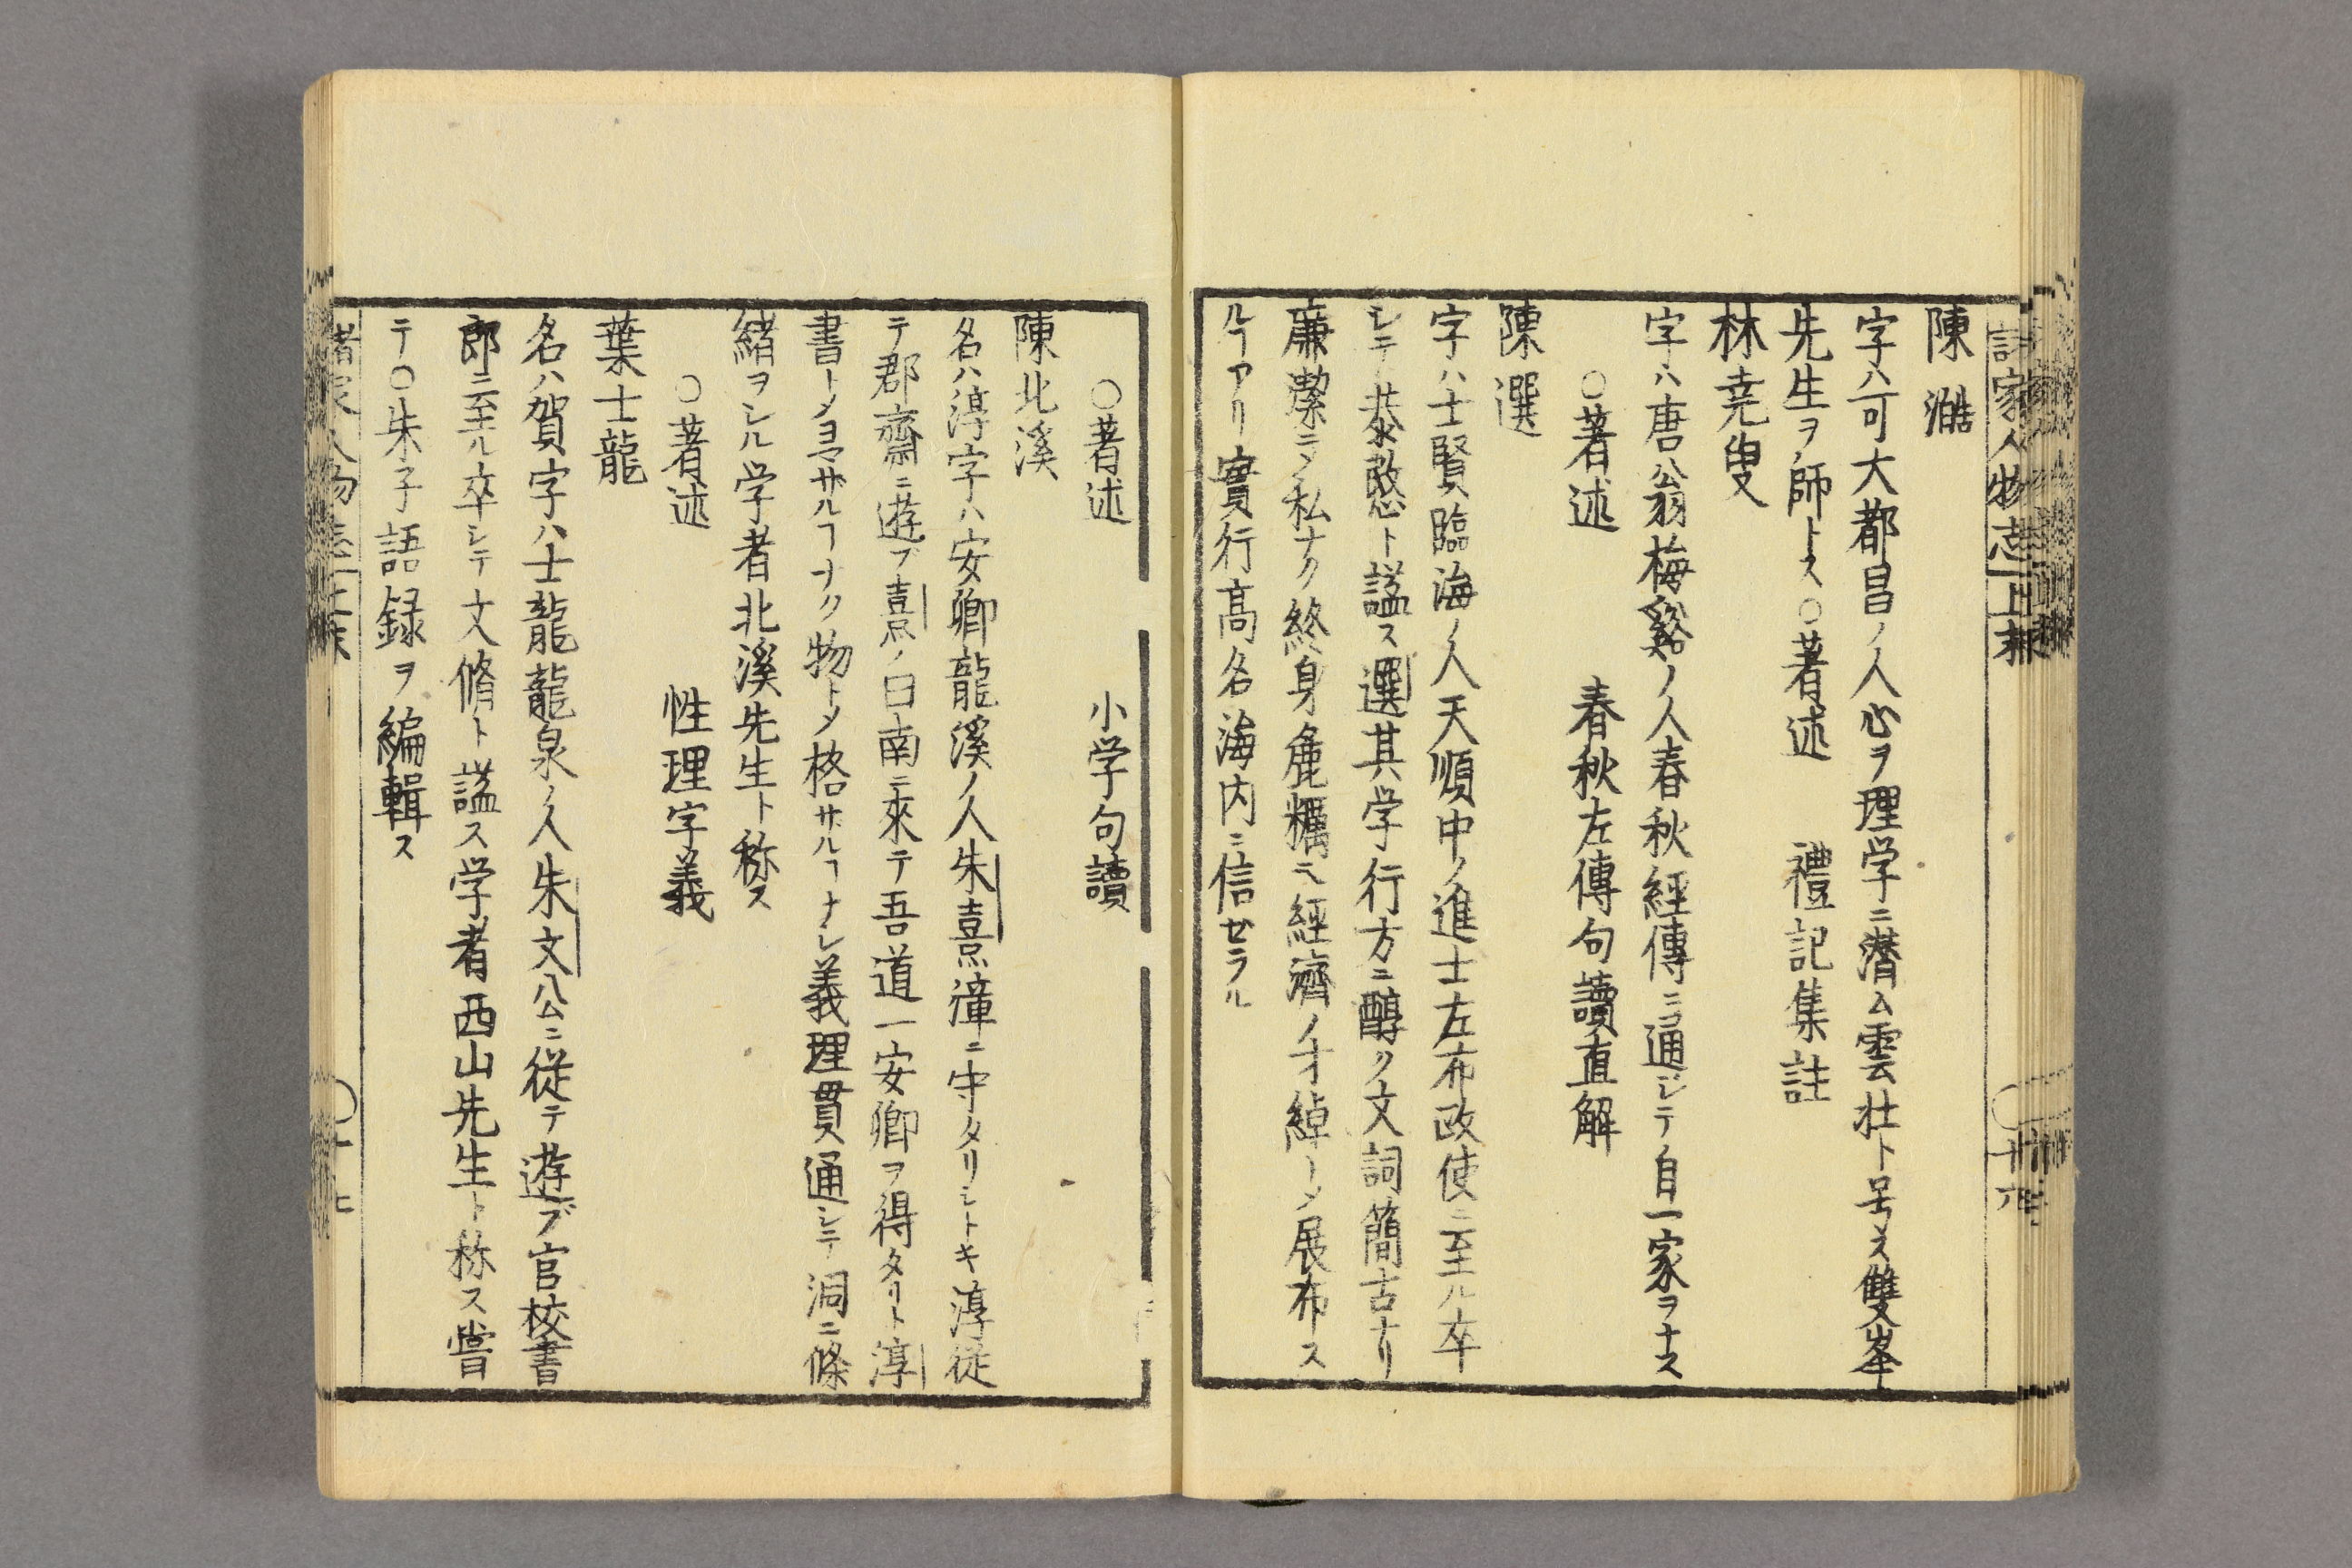 諸家人物志 上 十六
陳澔
字ハ可大都昌ノ人心ヲ理学ニ潜ム雲壮ト号ス雙峯ト
先生ヲ師トス〇著述 禮記集註
林尭叟
字ハ唐翁梅谿ノ人春秋經傳ニ通シテ自一家ヲナス
〇著述 春秋左傳句讀直解
陳選
字ハ士賢臨海ノ人天順中ノ進士左布政使ニ至ル卒
シテ恭愍ト諡ス選其学行方ニ醇ク文詞簡古ナリ
廉潔ニノ私ナク終身麁糲ニ經濟ノ才綽トメ展布ス
ルヿアリ實行髙名海内ニ信セラル
〇著述 小学句讀
陳北溪
名ハ淳字ハ安卿龍溪ノ人朱熹漳ニ守タリシトキ淳従
テ郡齋ニ遊ブ熹ノ曰南ニ來テ吾道一安卿ヲ得タリト淳
書トメヨマザルヿナク物トメ格サルヿナレ義理貫通シテ洞ニ條
緒ヲシル学者北溪先生ト称ス
〇著述 性理字義
葉士龍
名ハ賀字ハ士龍龍泉ノ人朱文公ニ從テ遊ブ官校書
郎ニ至ル卒シテ文脩ト諡ス学者西山先生ト称ス嘗
テ〇朱子語録ヲ編輯ス
諸家人物志 上 十七